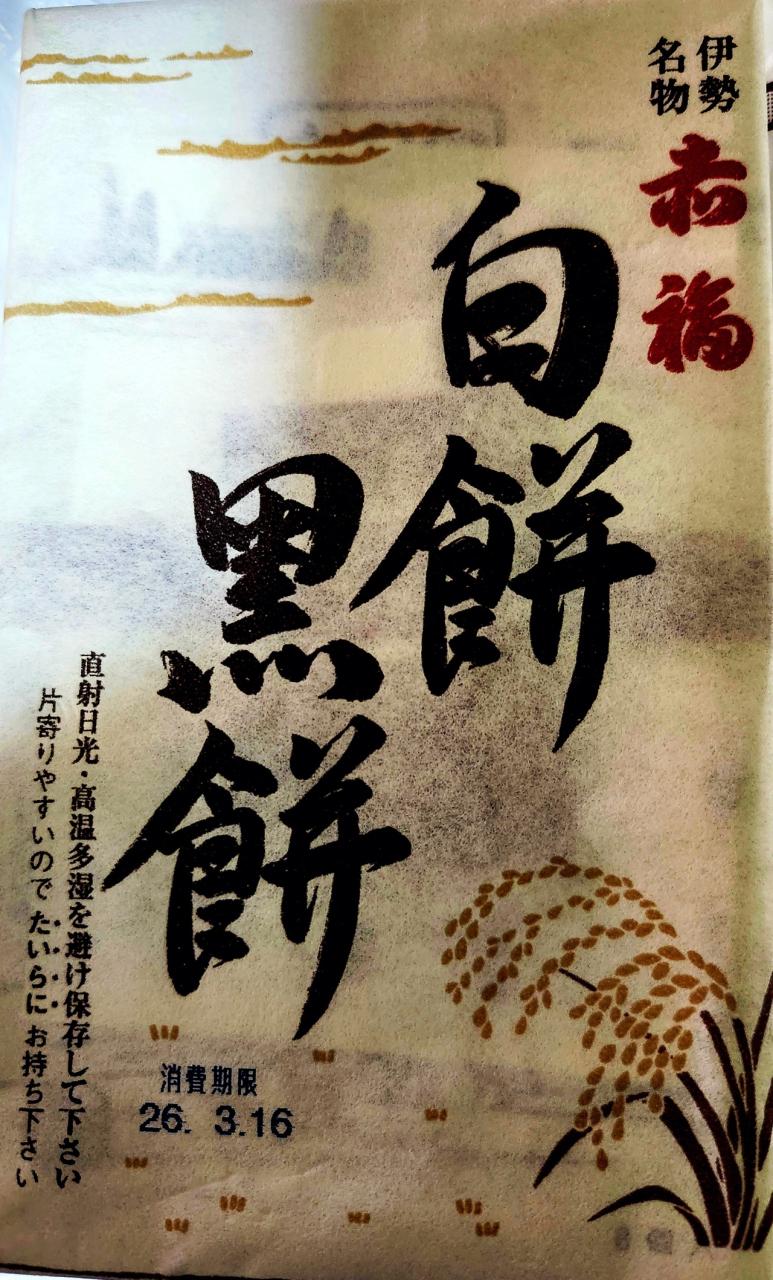 伊勢
名物
赤福
白餅
黒餅
直射日光・高温多湿を避け保存して下さい
片寄りやすいので たいらに お持ち下さい
消費期限
26. 3.16